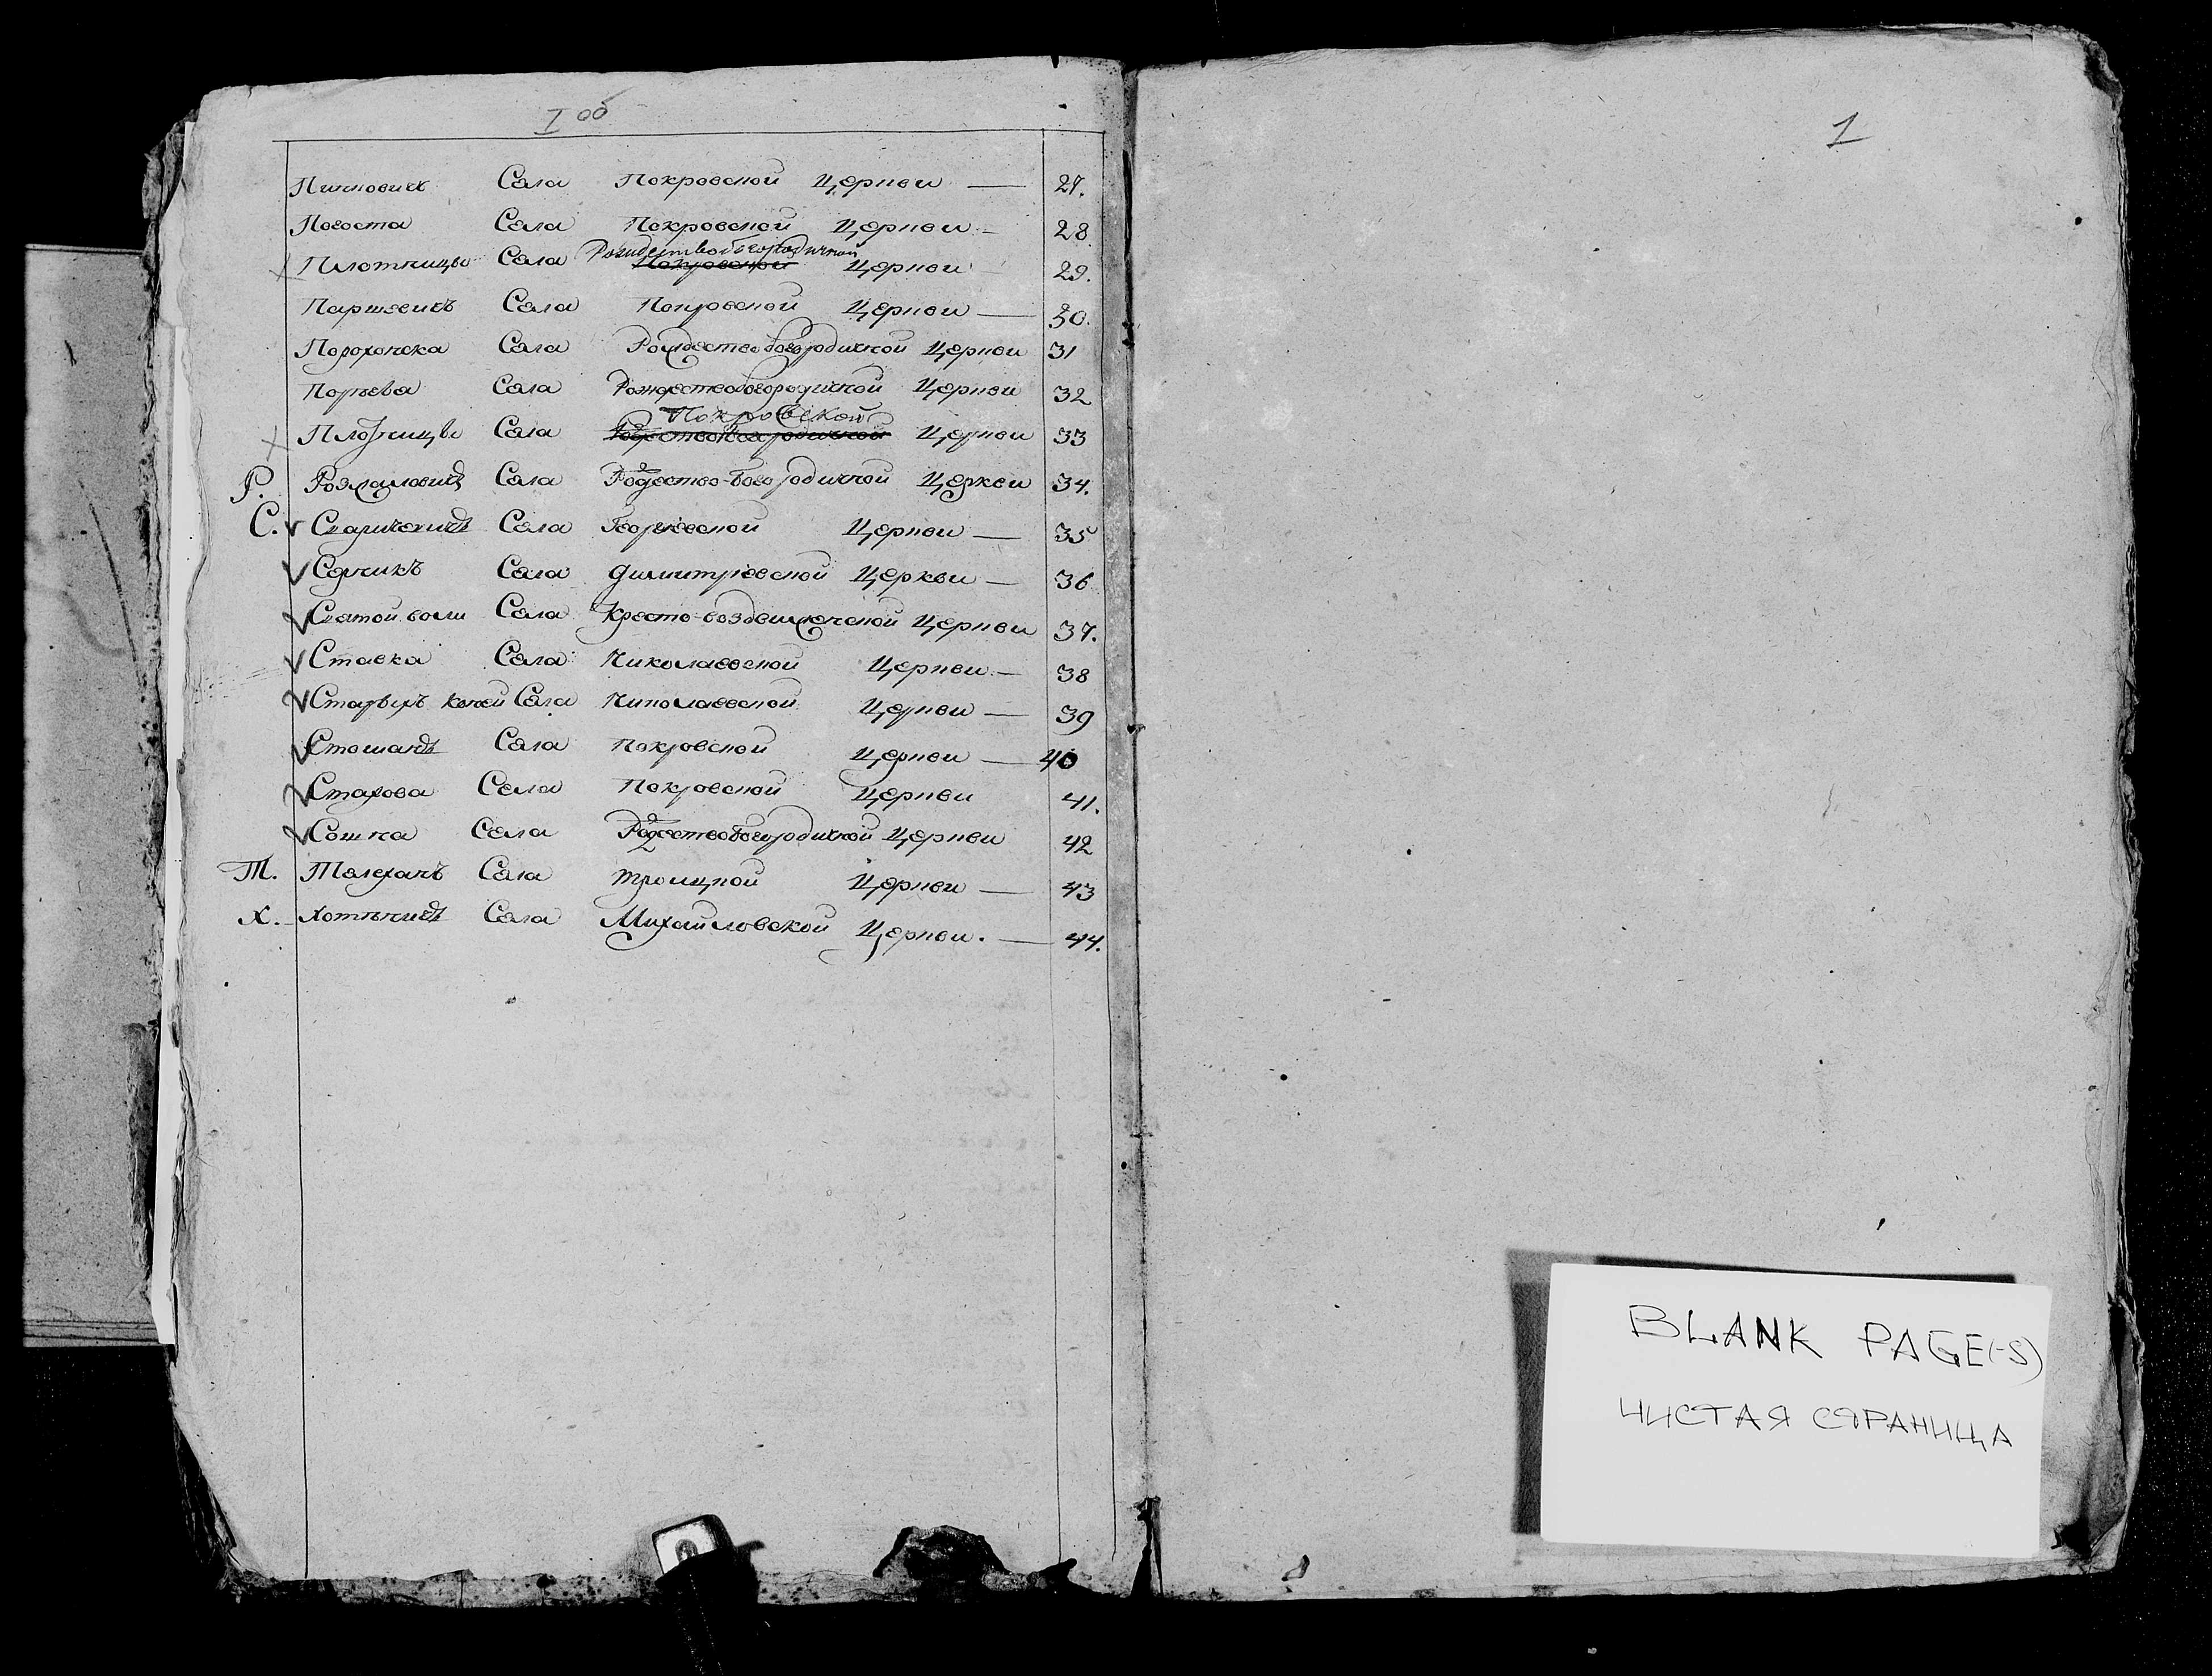 I об
Пинковичъ Села Покровской Церкви — 27.
Погоста Села Покровской Церкви - 28.
Рождествобогородичной
Плотницы Села Покровской Церкви - 29.
Паршевичъ Села Покровской Церкви — 30.
Порохонска Села Рождествобогородичной Церкви 31
Порѣева Села Рождествобогородичной Церкви 32
Покровской
Плотницы Села Рождествобогородичной Церкви 33
Р. Розмаловичъ Села Рождество-богородичной Церкви 34.
С. Села Георгіевской Церкви — 35
Серникъ Села Димитріевской Церкви — 36
Святой воли Села Кресто-воздвиженской Церкви 37.
Ставка Села Николаевской Церкви — 38
Старыхъ коней Села Николаевской Церкви — 39
Стошанъ Села Покровской Церкви — 40
Стахова Села Покровской Церкви 41.
Сошна Села Рождествобогородичной Церкви 42
Т. Телеханъ Села Троицкой Церкви — 43
Х. Хотыничъ Села Михайловской Церкви. — 44.
1
BLANK PAGE(-S)
ЧИСТАЯ СТРАНИЦА